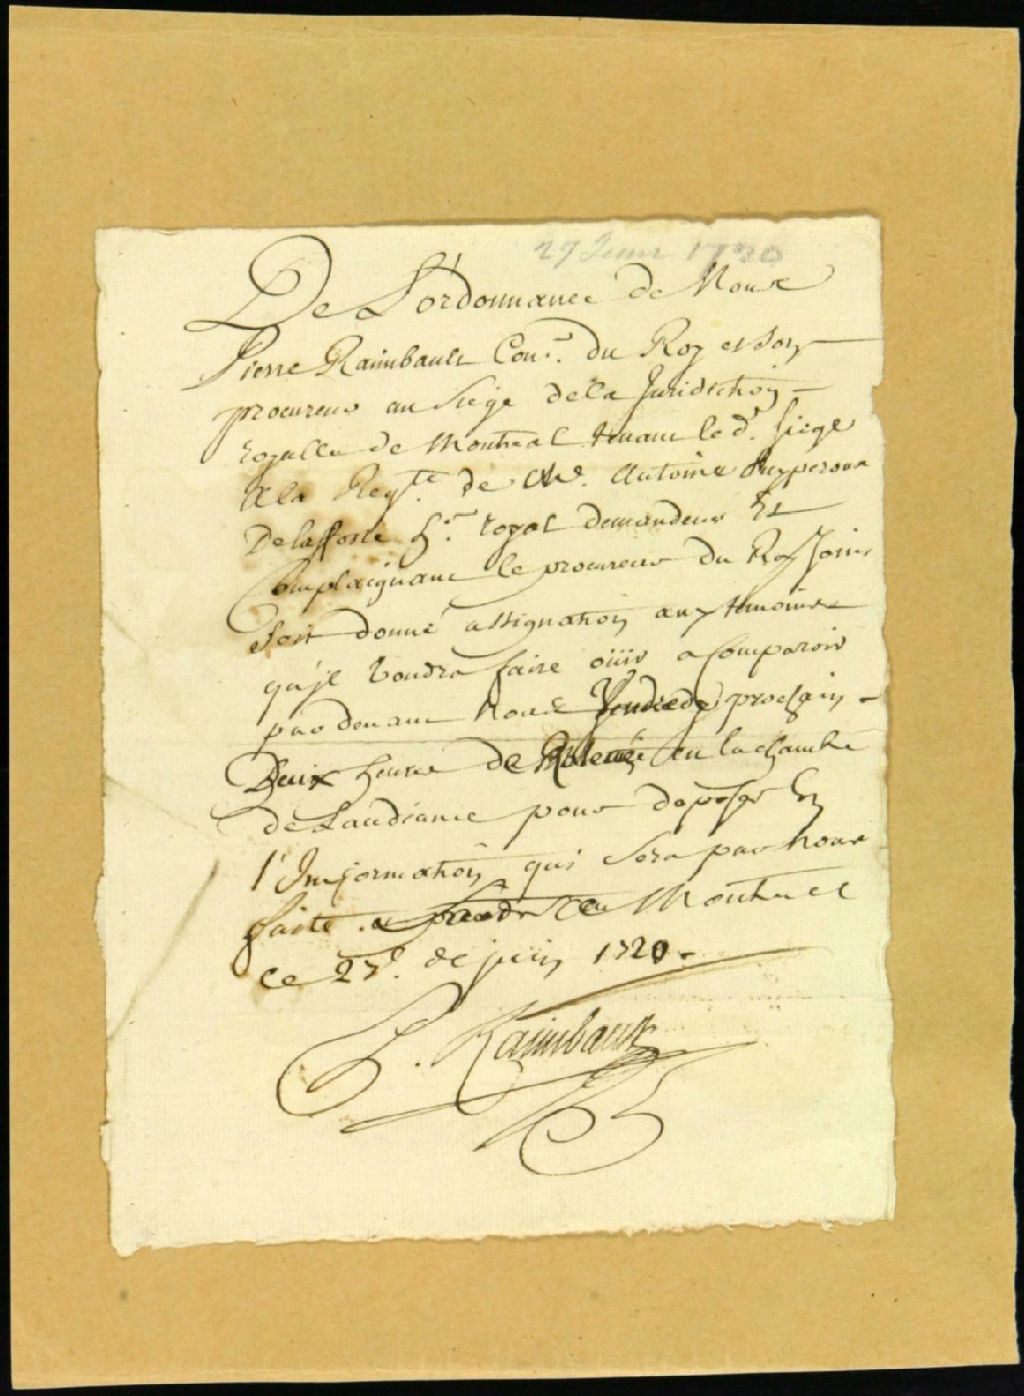 27 Juin 1720
De L'ordonnance de Mons.r
Pierre Raimbault Con.r du Roy et son
procureur au Siege de la Juridiction
royalle de Montreal tenant led.t Siege
A la Reg.te de Me. Antoine Puyperoux
De laffosse h.r royal demandeur Et
Complaignant le procureur du Roy Joint
Soit donné assignation aux temoins
qu'jl voudra faire oüir a Comparoir
pardevant Nous Vendredy prochain
Deux heures De Relevée en la chambre
de Laudiance pour deposer En
l'Information qui Sera par Nous
faite. Montreal
ce 27e. de juin 1720.
P. Raimbault